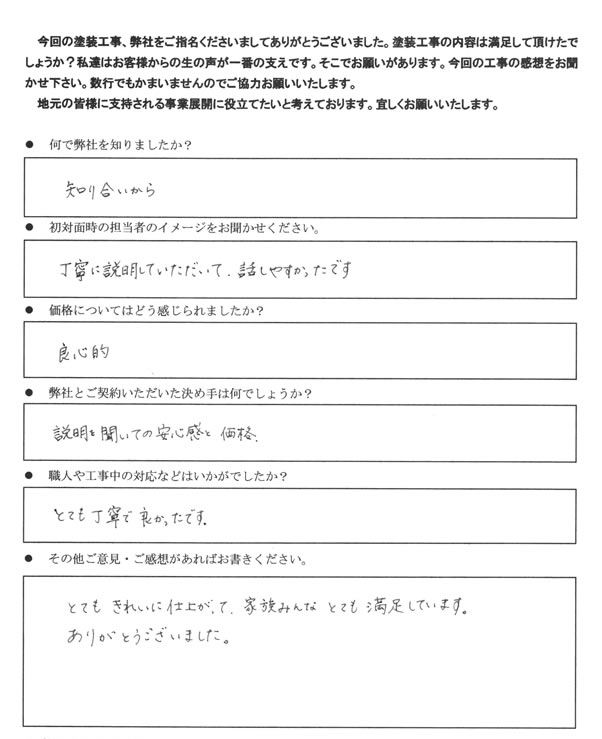 今回の塗装工事、弊社をご指名くださいましてありがとうございました。塗装工事の内容は満足して頂けたで
しょうか？私達はお客様からの生の声が一番の支えです。そこでお願いがあります。今回の工事の感想をお聞
かせ下さい。数行でもかまいませんのでご協力お願いいたします。
地元の皆様に支持される事業展開に役立てたいと考えております。宜しくお願いいたします。
● 何で弊社を知りましたか？
知り合いから
● 初対面時の担当者のイメージをお聞かせください。
丁寧に説明していただいて、話しやすかったです
● 価格についてはどう感じられましたか？
良心的
● 弊社とご契約いただいた決め手は何でしょうか？
説明を聞いての安心感と価格。
● 職人や工事中の対応などはいかがでしたか？
とても丁寧で良かったです。
● その他ご意見・ご感想があればお書きください。
とてもきれいに仕上がって、家族みんなとても満足しています。
ありがとうございました。